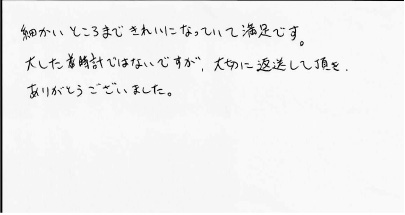 細かいところまできれいになっていて満足です。
大した時計ではないですが、大切に返送して頂き、
ありがとうございました。